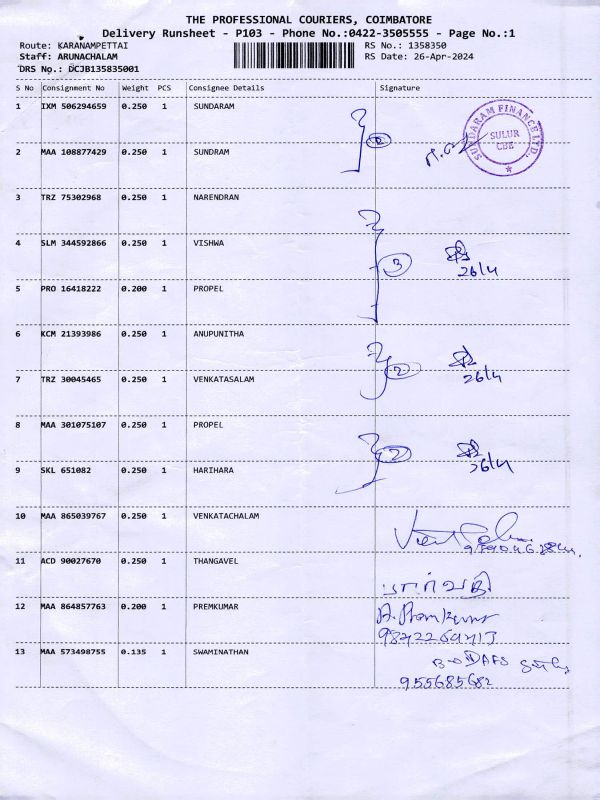 THE PROFESSIONAL COURIERS, COIMBATORE
Delivery Runsheet - P103 - Phone No.:0422-3505555 - Page No.:1
Route: KARANAMPETTAI RS No.: 1358350
Staff: ARUNACHALAM RS Date: 26-Apr-2024
DRS No.: DCJB135835001
S No Consignment No Weight PCS Consignee Details Signature
1 IXM 506294659 0.250 1 SUNDARAM
SUNDARAM FINANCE LTD.,
SULUR
CBE
2
2 MAA 108877429 0.250 1 SUNDRAM
3 TRZ 75302968 0.250 1 NARENDRAN
4 SLM 344592866 0.250 1 VISHWA
3 26/4
5 PRO 16418222 0.200 1 PROPEL
6 KCM 21393986 0.250 1 ANUPUNITHA
2 26/4
7 TRZ 30045465 0.250 1 VENKATASALAM
8 MAA 301075107 0.250 1 PROPEL
2 26/4
9 SKL 651082 0.250 1 HARIHARA
10 MAA 865039767 0.250 1 VENKATACHALAM
11 ACD 90027670 0.250 1 THANGAVEL
பார்வதி
12 MAA 864857763 0.200 1 PREMKUMAR
A. Premkumar
13 MAA 573498755 0.135 1 SWAMINATHAN
955685682